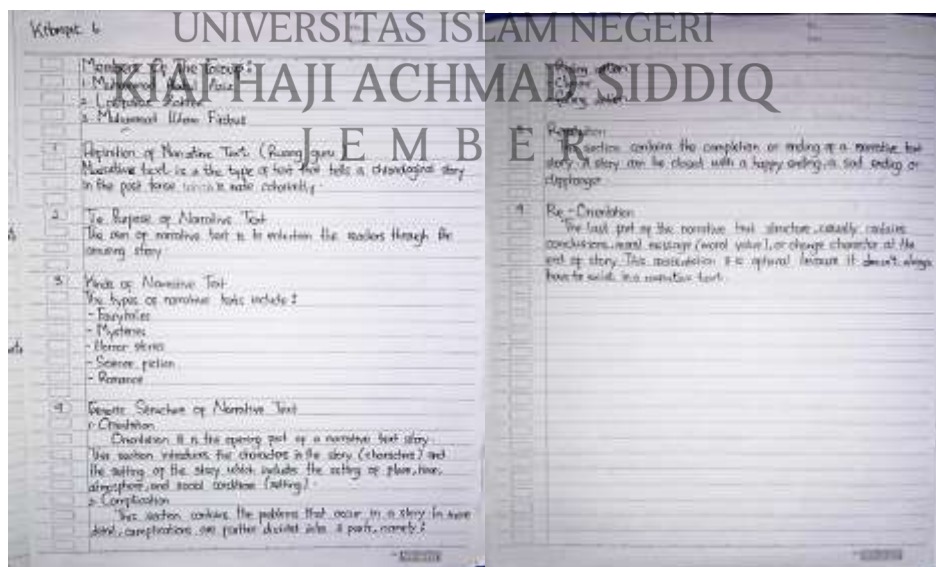 UNIVERSITAS ISLAM NEGERI
KIAI HAJI ACHMAD SIDDIQ
JEMBER
Kelompok 6
Members Of The Group :
1. Muhammad Abdul Aziz
2.
3. Muhammad Ilham Firdaus
1 Definition of Narrative Text (Ruang guru)
Narrative text is a the type of text that tells a chronological story
in the past tense
2. The Purpose of Narrative Text
The aim of narrative text is to entertain the readers through the
amusing story
3 Kinds of Narrative Text
The types of narrative texts include :
- Fairytales
- Mysteries
- Horror stories
- Science fiction
- Romance
4 Generic Structure of Narrative Text
1. Orientation
Orientation it is the opening part of a narrative text story.
This section introduces the characters in the story (characters) and
the setting of the story which includes the setting of place, time,
atmosphere, and social condition (setting).
2. Complication
This section contains the problems that occur in a story. In more
detail, complications are further divided into 3 parts, namely :
Rising action
Climax
Falling action
Resolution
This section contains the completion or ending of a narrative text
story. A story can be closed with a happy ending, a sad ending or
cliffhanger
4 Re-Orientation
The last part of the narrative text structure, usually contains
conclusions, moral message (moral value), or change character at the
end of story. This reorientation it is optional because it doesn't always
have to exist in a narrative text.